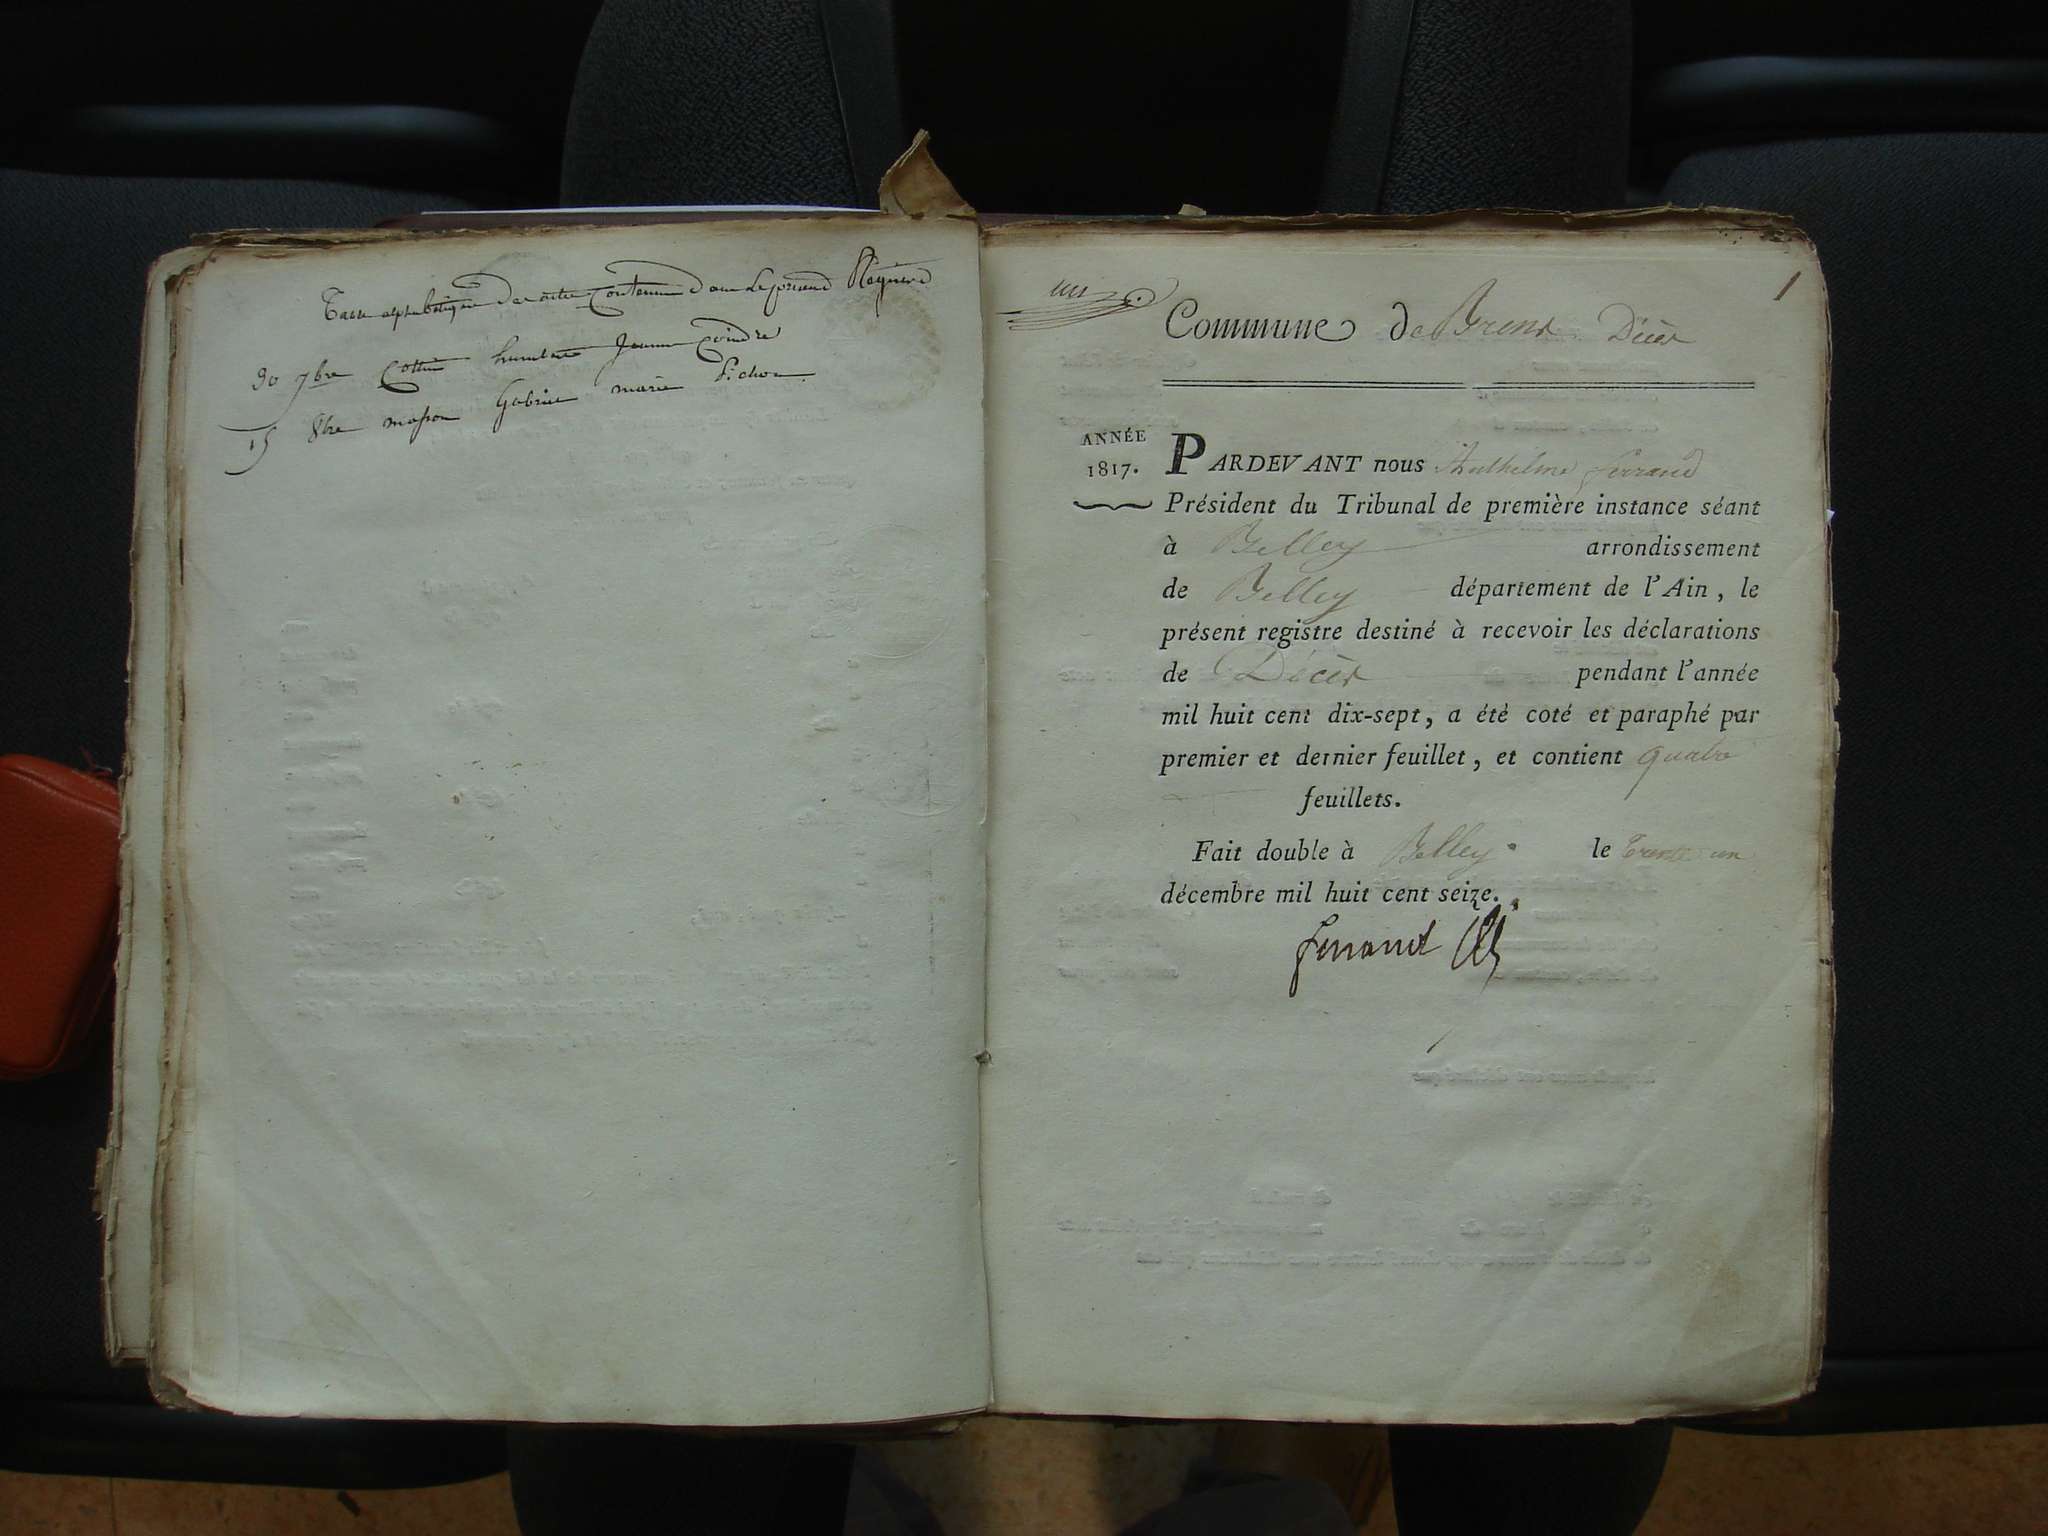 Table alphabétique des actes Contenus dans Le présent Registre
30 7bre Cottin humbert Jeanne Coindre
15 8bre masson Gabriel marie Pichon
un
1
Commune de Brens Décès
ANNÉE
1817.
PARDEVANT nous Anthelme ferrand
Président du Tribunal de première instance séant
à Belley arrondissement
de Belley département de l'Ain, le
présent registre destiné à recevoir les déclarations
de Décès pendant l'année
mil huit cent dix-sept, a été coté et paraphé par
premier et dernier feuillet, et contient quatre
feuillets.
Fait double à Belley le trente un
décembre mil huit cent seize.
ferrand